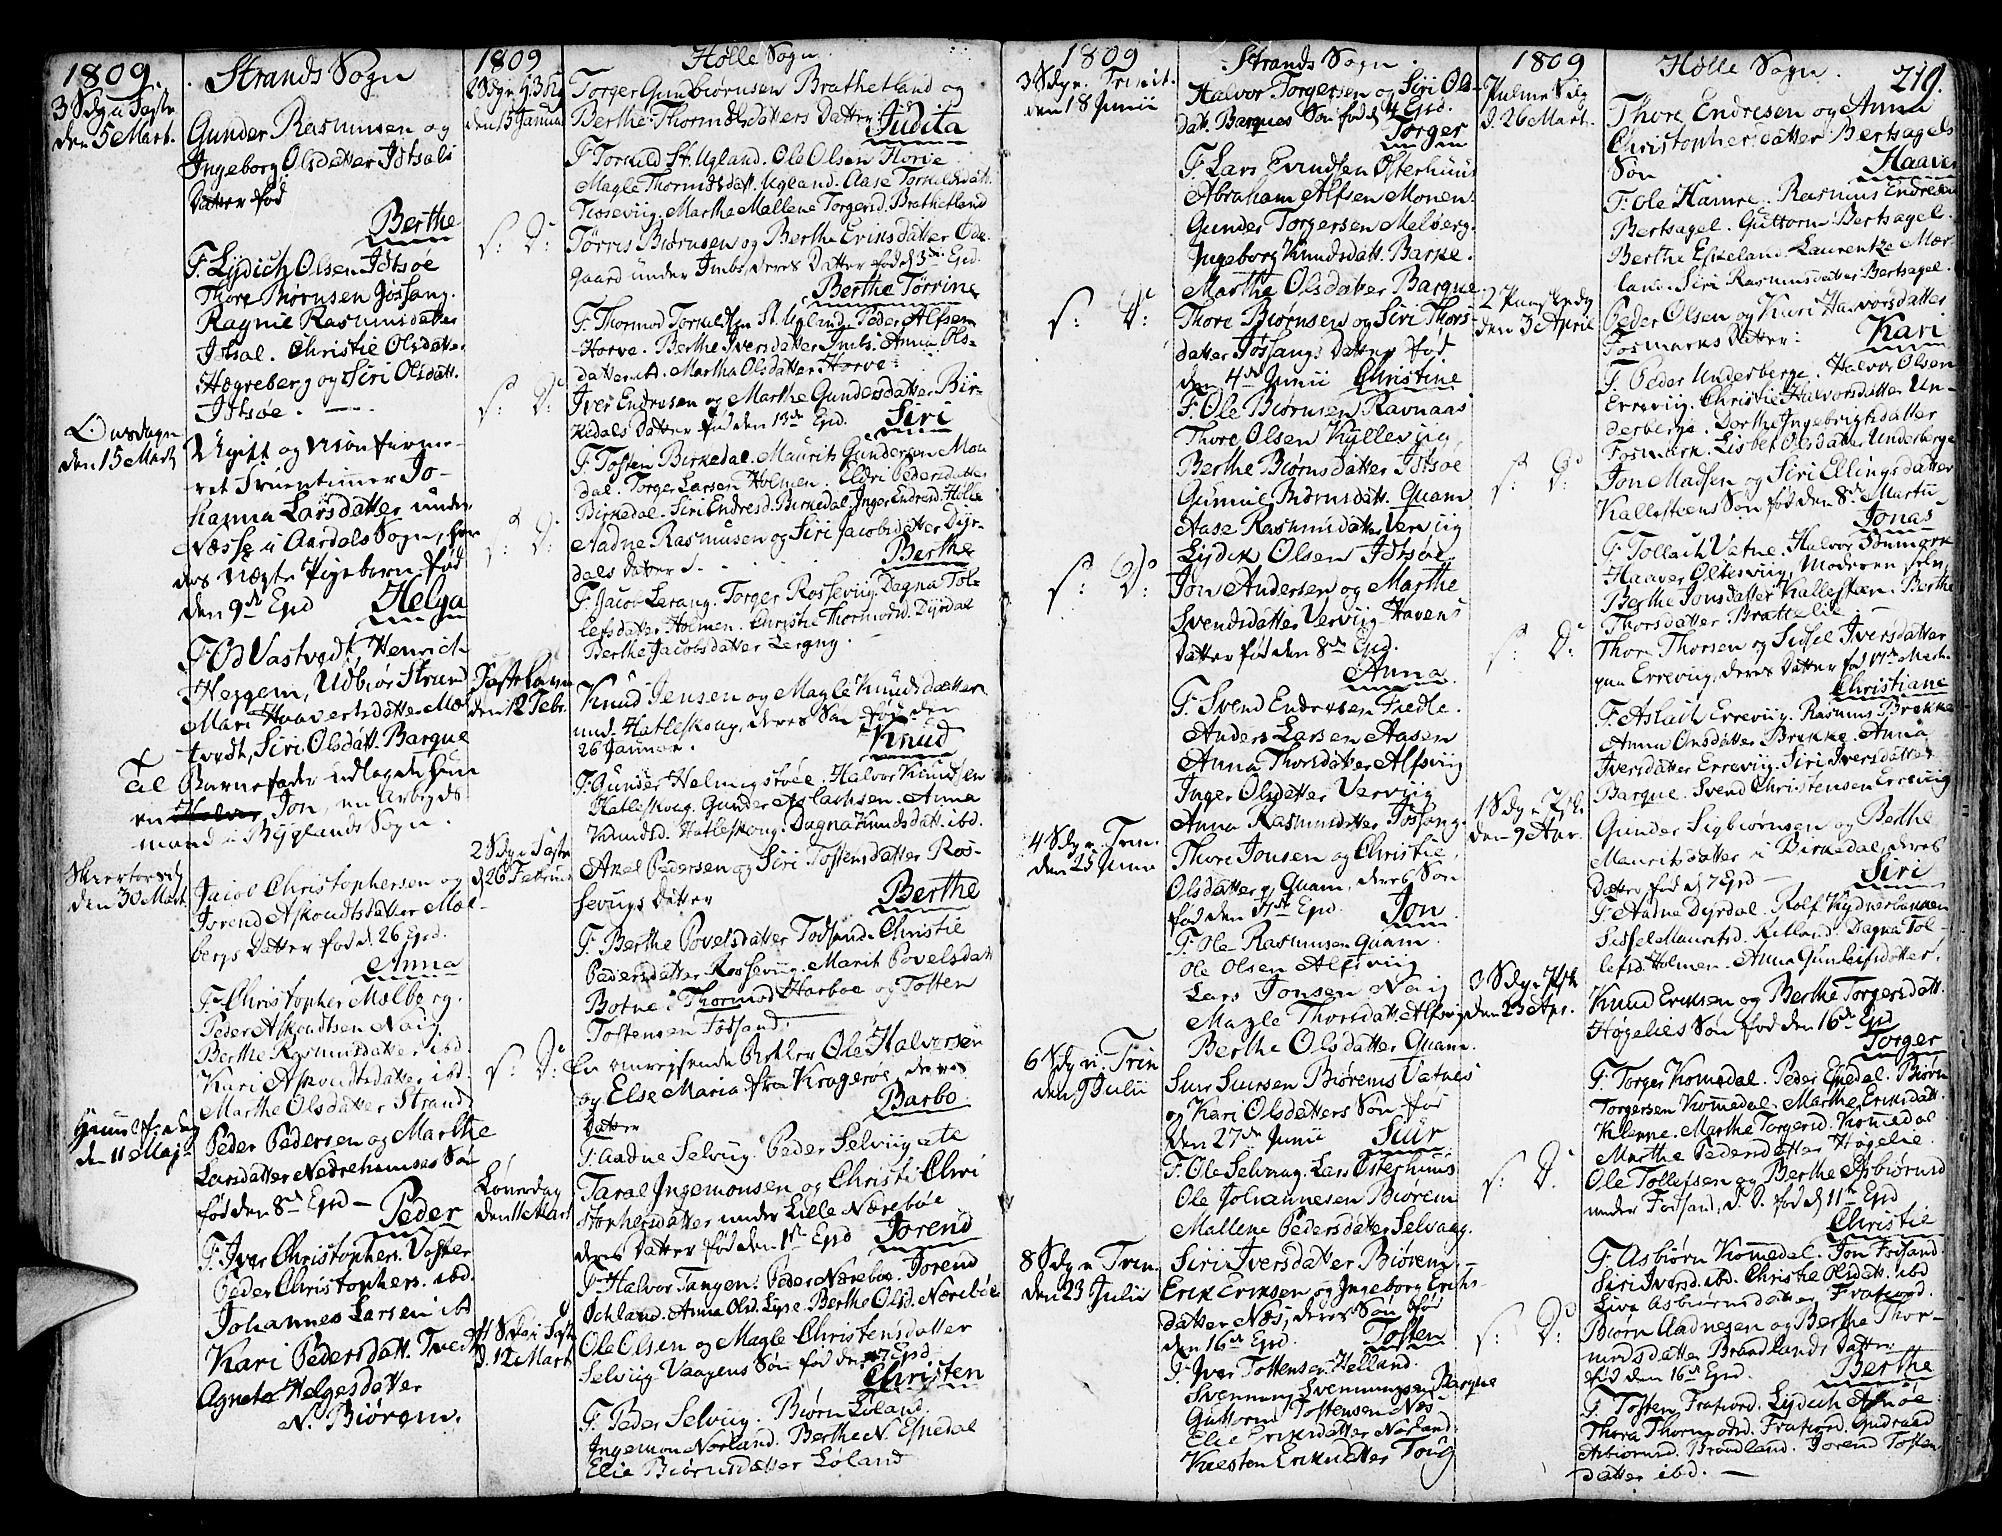 1809.
Strands Sogn
3 Sdg i Faste
den 5 Mart.
Gunder Rasmusen og
Ingeborg Olsdatter Idtsals
Datter fød
Berthe
F. Lydich Olsen Idtsøe
Thore Biørnsen Jøssang.
Ragnil Rasmusdatter
Idtsal. Christie Olsdatter
Høgreberg og Siri Olsdatt.
Idtsøe.
Onsdagen
den 15 Marts
Ugift og
ret Fruentimmer Jo-
hanna Larsdatter under
Næsse i Aardals Sogn, hen
des uægte Pigebarn fød
den 9de Ejsd Helga
F. Od Vastvedt, Henrich
Heggem, Udbiør Strand
Mari Haavertsdatter Mæl
tvedt, Siri Olsdatt. Barque
Til Barnefader udlagde hun
en Jon, en Arbejds
mand i Byglands Sogn.
Skiertorsdg
den 30 Mart.
Jacob Christophersen og
Jorend Askoudtsdatter Mæl-
bergs Datter fød d. 26 Ejsd.
Anna
F. Christopher Mælberg.
Peder Askoudtsen Naig
Berthe Rasmusdatter ibd.
Kari Askoudtsdatter ibd.
Marthe Olsdatter Strand
den 11 Maj
Peder Pedersen og Marthe
Larsdatter Nedrehemses Søn
fød den 8de Ejsd — Peder
F. Iver Christophers. Voster
Peder Christophers. ibd.
Johannes Larsen ibd
Kari Pedersdatt. Tvedt
Agneta Helgesdatter
N. Biørem.
1809
Holle Sogn.
den 15 Januar
Torger Gunbiørnsen Brathetland og
Berthe Thormodsdatters Datter Judita
F. Torkild St. Ugland. Ole Olsen Horve
Magle Thormodsdatt. Ugland. Aase Torkildsdatt.
Tiosevig. Marthe Mallene Torgersd. Brathetland
s: D:
Tørris Biørnsen og Berthe Eriksdatter Øde-
gaard under Imbs, deres Datter fød d 3de Ejsd.
Berthe Tørrine
F. Thormod Torkildsen St. Ugland. Peder Alfsen
Horve. Berthe Iversdatter Imbs. Anna Ols-
datter. Martha Olsdatter Horve
s: D:
Iver Endresen og Marthe Gundersdatter Bir-
kedals Datter fød den 13de Ejsd. Siri
F. Tosten Birkedal. Maurits Gundersen Mæl
dal. Torger Larsen Holmen. Eldri Pedersdatter
Birkedal. Siri Endresd. Birkedal. Inger Endresd. Holle
s: D:
Aadne Rasmusen og Siri Jacobsdatter Dyr-
dals Datter Berthe
F. Jacob Lerang. Torger Rossevig. Dagna Tol-
lefsdatter Holmen. Christie Thormodsd. Dyrdal
Berthe Jacobsdatter Lerang.
Fastelavn
den 12 Febr.
Knud Jensen og Magle Knudsdatter
und. Hatleskoug, deres Søn fød den
26 Januar. Knud
F. Gunder Helmigstøe. Halvor Knudsen
Hatleskoug. Gunder Aslachsen. Anna
Knudsd. Hatleskoug. Dagna Knudsdatt. ibd.
2 Sdg i Faste
d 26 Februar
Axel Pedersen og Siri Tostensdatter Ros-
sevigs Datter Berthe
F. Berthe Povelsdatter Fodsand. Christie
Pedersdatter Rossevig. Marit Povelsdatt
Botne. Thormod Harboe og Tosten
Tostensen Fodsand.
s: D:
En omrejsende Ole Halvorsen
og Else Maria fra Kragerøe, deres
Datter Barbo
F. Aadne Selvig. Peder Selvig etc
Løverdag
den 11 Mart
Taral Ingemonsen og Christi Chri
stophersdatter under Lille Nærebøe
deres Datter fød den 1ste Ejsd Jorend
F. Halvor Tangen. Peder Nærebøe. Jorend
Ochland. Anna Olsd. Lyse. Berthe Olsd. Nærebøe
4 Sdg i Faste
d. 12 Mart
Ole Olsen og Magle Christensdatter
Selvig Vaagens Søn fød den 7 Ejsd
Christen
F. Peder Selvig. Biørn Løland.
Ingemon Norland. Berthe N. Espedal
Elie Biørnsdatter Løland
1809
Strands Sogn.
3 Sdg. Trinit.
den 18 Junii
Halvor Torgersen og Siri Ols-
datt. Barques Søn fød d 4 Ejsd.
Torger
F. Lars Evindsen Østerhuus
Abraham Alfsen Monen.
Gunder Torgersen Melberg.
Ingeborg Knudsdatt. Barke.
Marthe Olsdatter Barque
s: D:
Thore Biørnsen og Siri Thors-
datter Jøssangs Datter fød
den 4de Junii Christine
F. Ole Biørnsen Ravnaas
Thore Olsen Kyllevig,
Berthe Biørnsdatter Idtsøe
Gunnil Biørnsdatt. Quam
Aase Rasmusdatter Vervig
Lydik Olsen Idtsøe
s: D:
Jon Andersen og Marthe
Svendsdatter Vervig Havens
Datter fød den 8de Ejsd.
Anna
F. Svend Endresen Fiedle.
Anders Larsen Aasen
Anna Thorsdatter Alfsvig
Inger Olsdatter Vervig
Anna Rasmusdatter Jøssang.
4 Sdg. Trin.
den 25 Junii
Thore Jonsen og Christie
Olsdatter Quam, deres Søn
fød den 17de Ejsd. Jon
F. Ole Rasmusen Quam.
Ole Olsen Alfsvig
Lars Jonsen Naig
Magle Thorsdatt. Alfsvig
Berthe Olsdatter Quam.
6 Sdg. Trin
den 9 Julii
Siur Siursen Biørems Vatnes
og Kari Olsdatters Søn fød
den 27de Junii Siur
F. Ole Selvaag. Lars Østerhuus
Ole Johannesen Biørem
Mallene Pedersdatter Selvaag.
Siri Iversdatter Biørem.
8 Sdg. Trin.
den 23 Julii
Erik Eriksen og Ingeborg Erichs-
datter Næs, deres Søn fød
den 16de Ejsd. Tosten
F. Iver Tostensen Helland.
Svenning Svenningsen Barque
Guttorm Tostensen Næs
Elie Eriksdatter Norland.
Karsten Eriksdatter Toug
1809
Holle Sogn.
219.
Palme Sdg
d. 26 Mart.
Thore Endresen og Anna
Christophersdatter Bertsagels
Søn Haaver
F. Ole Hamre. Rasmus Endresen
Bertsagel. Guttorm Bertsagel.
Berthe Eskeland. Laurentze Mær-
land. Siri Rasmusdatter Bertsagel.
2 Paaskedg
den 3 April
Peder Olsen og Kari Halvorsdatter
Fosmarks Datter Kari
F. Peder Underberge. Halvor Olsen
Errevig. Christie Halvorsdatter Un-
derberge. Dorthe Ingebrigtsdatter
Fosmark. Lisbet Olsdatter Underberge
s: D:
Jon Madsen og Siri Ellingsdatter
Kallesteens Søn fød den 8de Martii
Jonas
F. Tollach Vatne. Halvor Fosmark
Haaver Oltesvig, Moderen selv,
Berthe Jonsdatter Kallesteen. Berthe
Thorsdatter Brattelie.
s: D:
Thore Thorsen og Sidsel Iversdatter
paa Errevig, deres Datter fød 17de Mart.
Christiane
F. Aslach Errevig. Rasmus Brekke
Anna Onsdatter Brekke. Anna
Iversdatter Errevig. Siri Iversdatter
Barque. Svend Christensen Errevig
1 Sdg. Psk.
den 9 Apr.
Gunder Sigbiørnsen og Berthe
Mauritsdatter i Birkedal, deres
Datter fød d 7 Ejsd — Siri
F. Aadne Dyrdal. Rolf Kydnerbakken
Sidsel Mauritsd. Rilland. Dagna Tol-
lefsd. Holmen. Anna Gunleifsdatter.
3 Sdg. Psk
den 23 Apr.
Knud Eriksen og Berthe Torgersdatt.
Høgelies Søn fød den 16de Ejsd
Torger
F. Torger Komedal. Peder Espedal. Biørn
Torgersen Komedal. Marthe Eriksdatt.
Kleppe. Marthe Torgersd. Komedal
Marthe Pedersdatter Høgelie.
s: D.
Ole Tollefsen og Berthe Asbiørnsd
under Fodsand, d. D. fød d 11te Ejsd
Christie
F. Asbiørn Komedal. Jon Fodsand.
Siri Iversd. ibd. Christie Olsdatt. ibd
Liva Asbiørnsdatter Frafiord.
s: D:
Biørn Aadnesen og Berthe Thor-
modsdatter Brandlands Datter
fød den 16de Ejsd. Berthe
F. Tosten Frafiord. Lydich
Thora Thormodsd. Frafiord. Gudraad
Asbiørnsd. Brandland. Jorend Tosten-
datter ibd. —